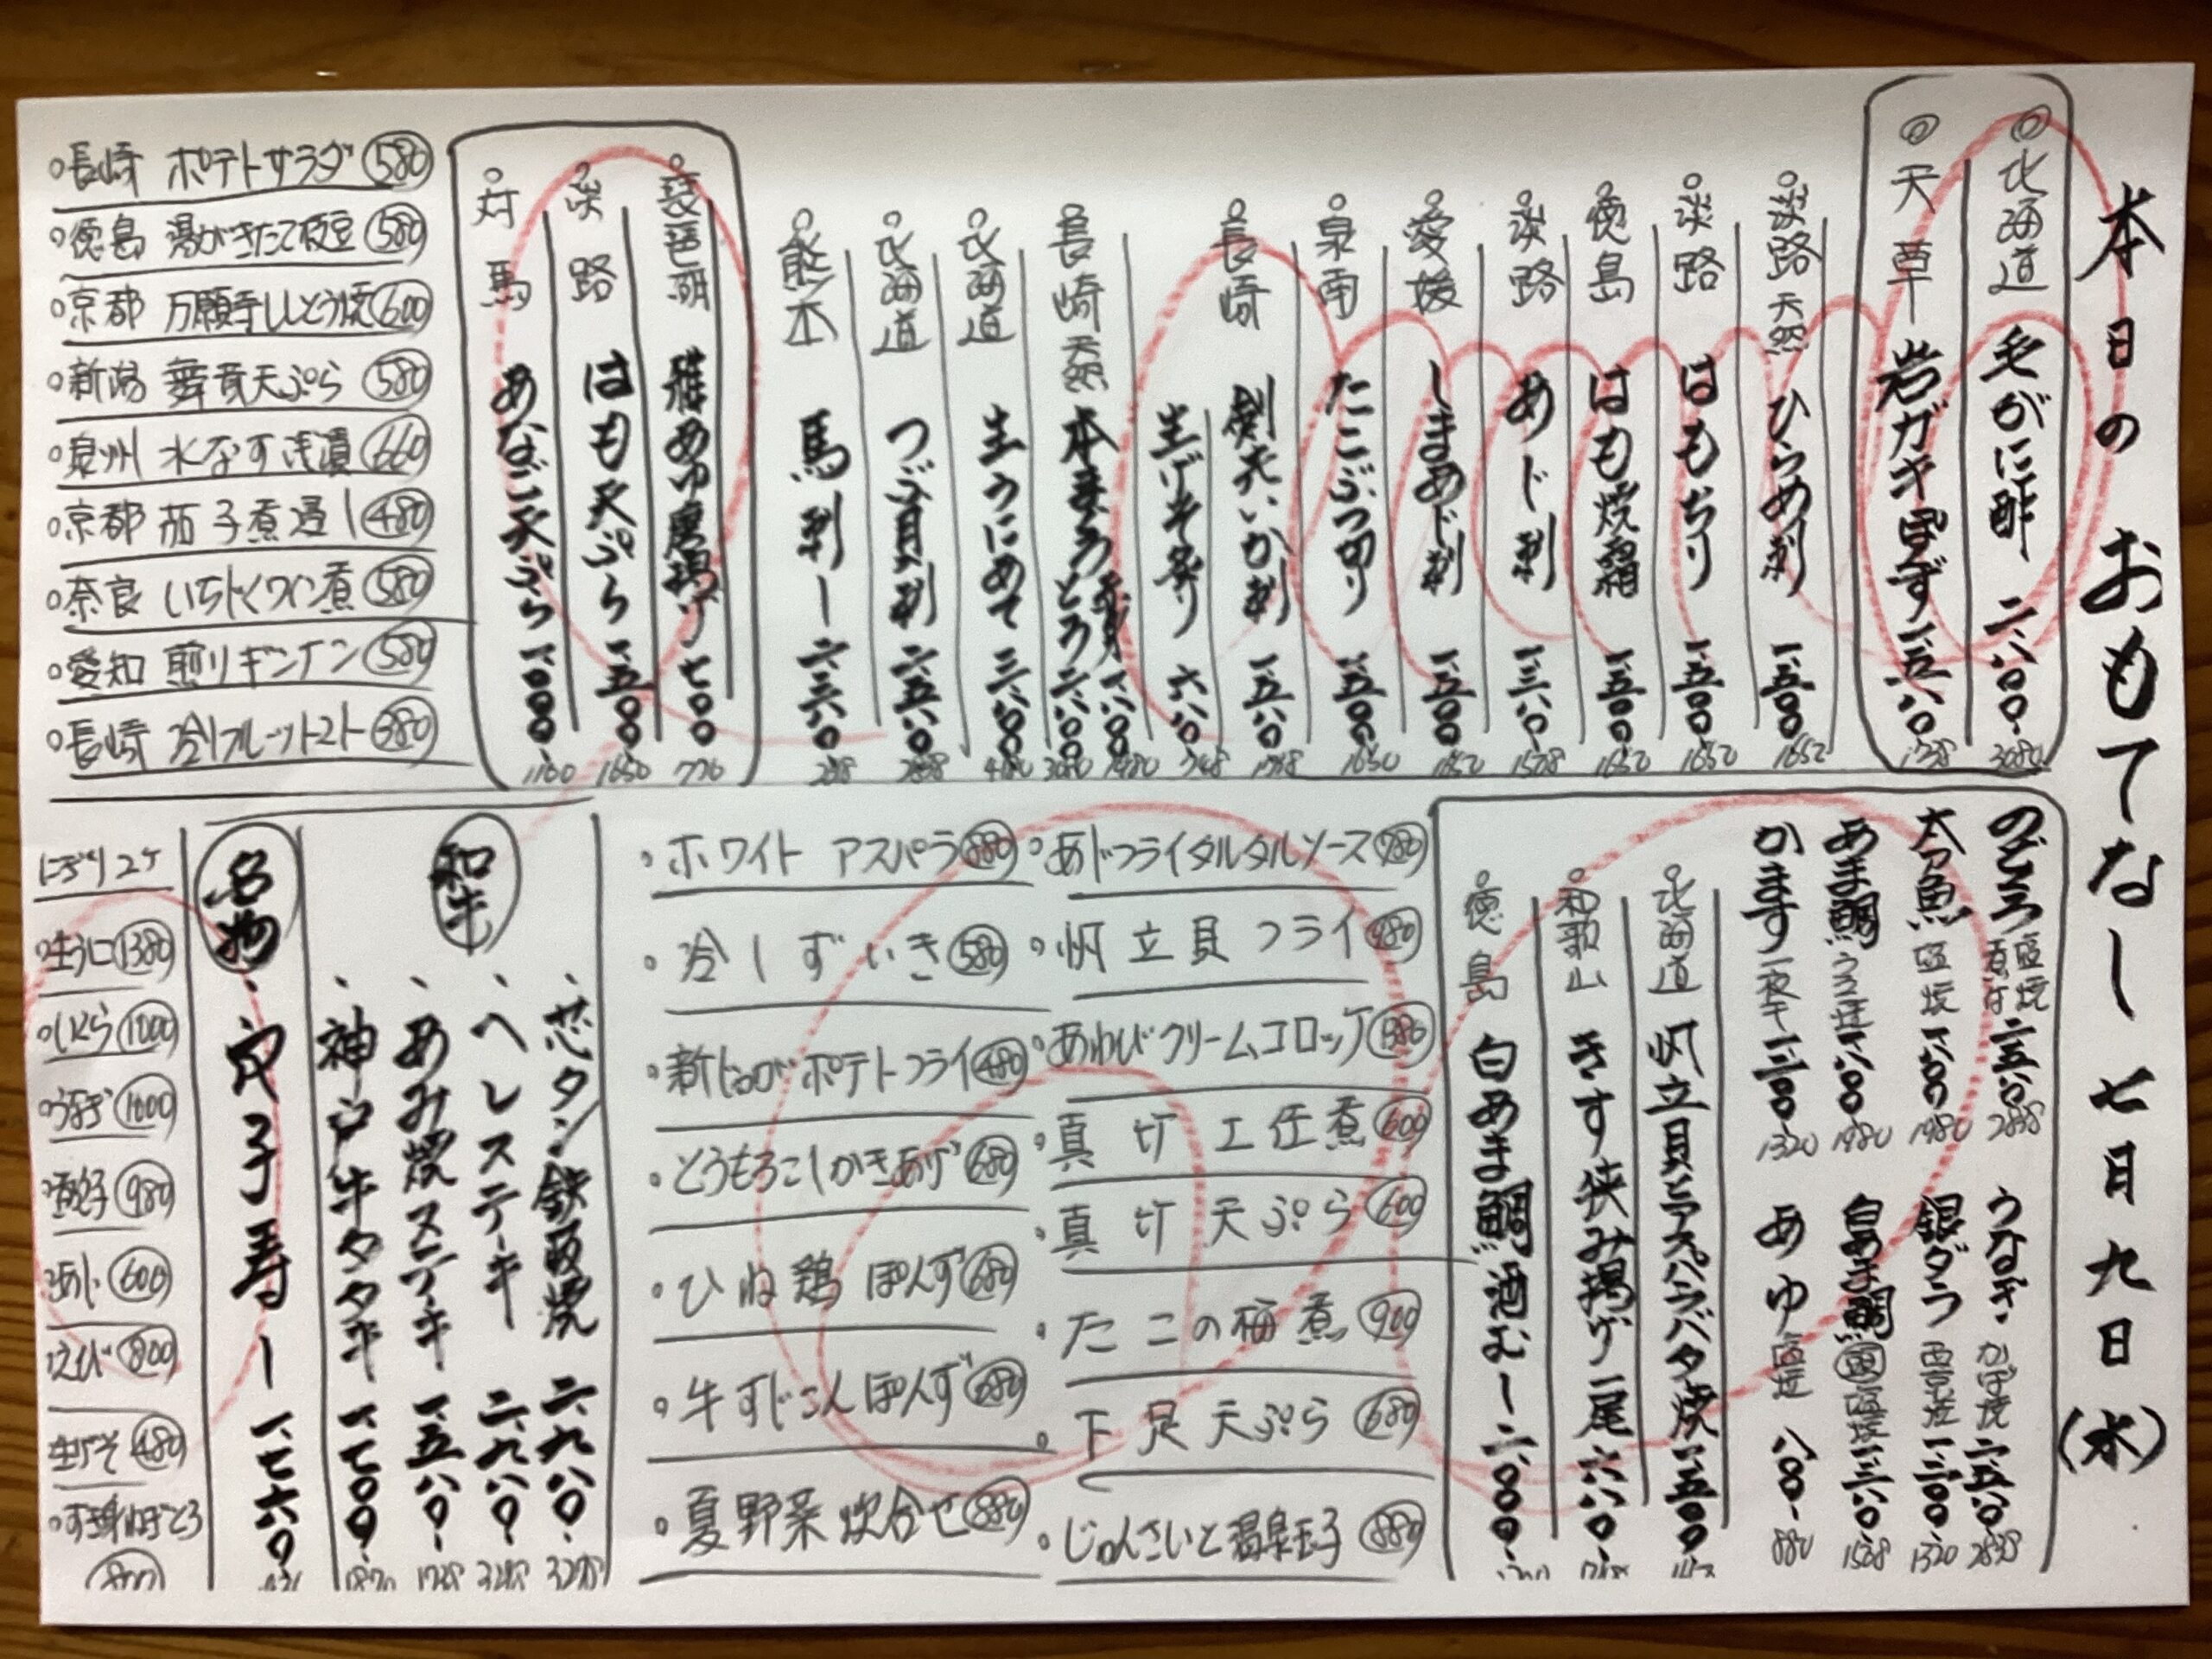 本日の おもてなし 七月九日(水)
◎北海道 毛がに酢 二、八〇〇 3080
◎天草 岩ガキぽんず 一、五八〇 1738
淡路 天然 ひらめ刺 一、五〇〇 1650
淡路 はもちり 一、五〇〇 1650
徳島 はも焼霜 一、五〇〇 1650
淡路 あじ刺 一、三八〇 1518
愛媛 しまあじ刺 一、五〇〇 1650
泉南 たこぶつ切り 一、五〇〇 1650
長崎 剣先いか刺 一、五八〇 1738
生げそ造り 六八〇 748
長崎 天然 本まぐろ 赤身 一、八〇〇 1980
とろ 二、八〇〇 3080
北海道 生うにあて 三、八〇〇 4180
北海道 つぶ貝刺 二、五八〇 2838
熊本 馬刺し 二、三八〇
琵琶湖 稚あゆ唐揚げ 七〇〇 770
淡路 はも天ぷら 一、五〇〇 1650
対馬 あなご天ぷら 一、〇〇〇 1100
長崎 ポテトサラダ 580
徳島 湯がきたて枝豆 580
京都 万願寺ししとう焼 600
新潟 舞茸天ぷら 580
泉州 水なす浅漬 660
京都 茄子煮浸し 480
奈良 いちじくワイン煮 580
愛知 煎りギンナン 580
長崎 冷しフルーツトマト 380
のどぐろ 塩焼 煮付 二、五八〇 2838
太刀魚 塩焼 一、八〇〇 1980
あま鯛 うろこ焼 一、八〇〇 1980
かます 一夜干 一、二〇〇 1320
うなぎ かば焼 二、五八〇 2838
銀ダラ 西京焼 一、二〇〇 1320
白あま鯛 塩焼 一、三八〇 1518
あゆ 塩焼 八〇〇 880
北海道 帆立貝とアスパラバタ焼 一、五〇〇
和歌山 きす挟み揚げ 二尾 六八〇
徳島 白あま鯛 酒むし 二、〇〇〇
・あじフライタルタルソース 980
・帆立貝フライ 980
・あわびクリームコロッケ
・真竹土佐煮 600
・真竹天ぷら 600
・たこの柚煮 900
・下足天ぷら 680
・じゅんさいと温泉玉子 880
・ホワイトアスパラ 880
・冷しずいき 580
・新じゃがポテトフライ 480
・とうもろこしかきあげ 680
・ひね鶏ぽんず 680
・牛すじこんぽんず 680
・夏野菜炊合せ 880
和牛
、芯タン鉄板焼 二、九八〇 3278
、ヘレステーキ 二、九八〇 3278
、あみ焼ステーキ 一、五八〇 1738
、神戸牛タタキ 一、七〇〇 1870
名物
、穴子寿し 一、七六〇
にぎり2ケ
・生うに 1380
・いくら 1000
・うなぎ 1000
・煮穴子 980
・あじ 600
・えび 800
・生げそ 480
・すき身ねぎとろ 800